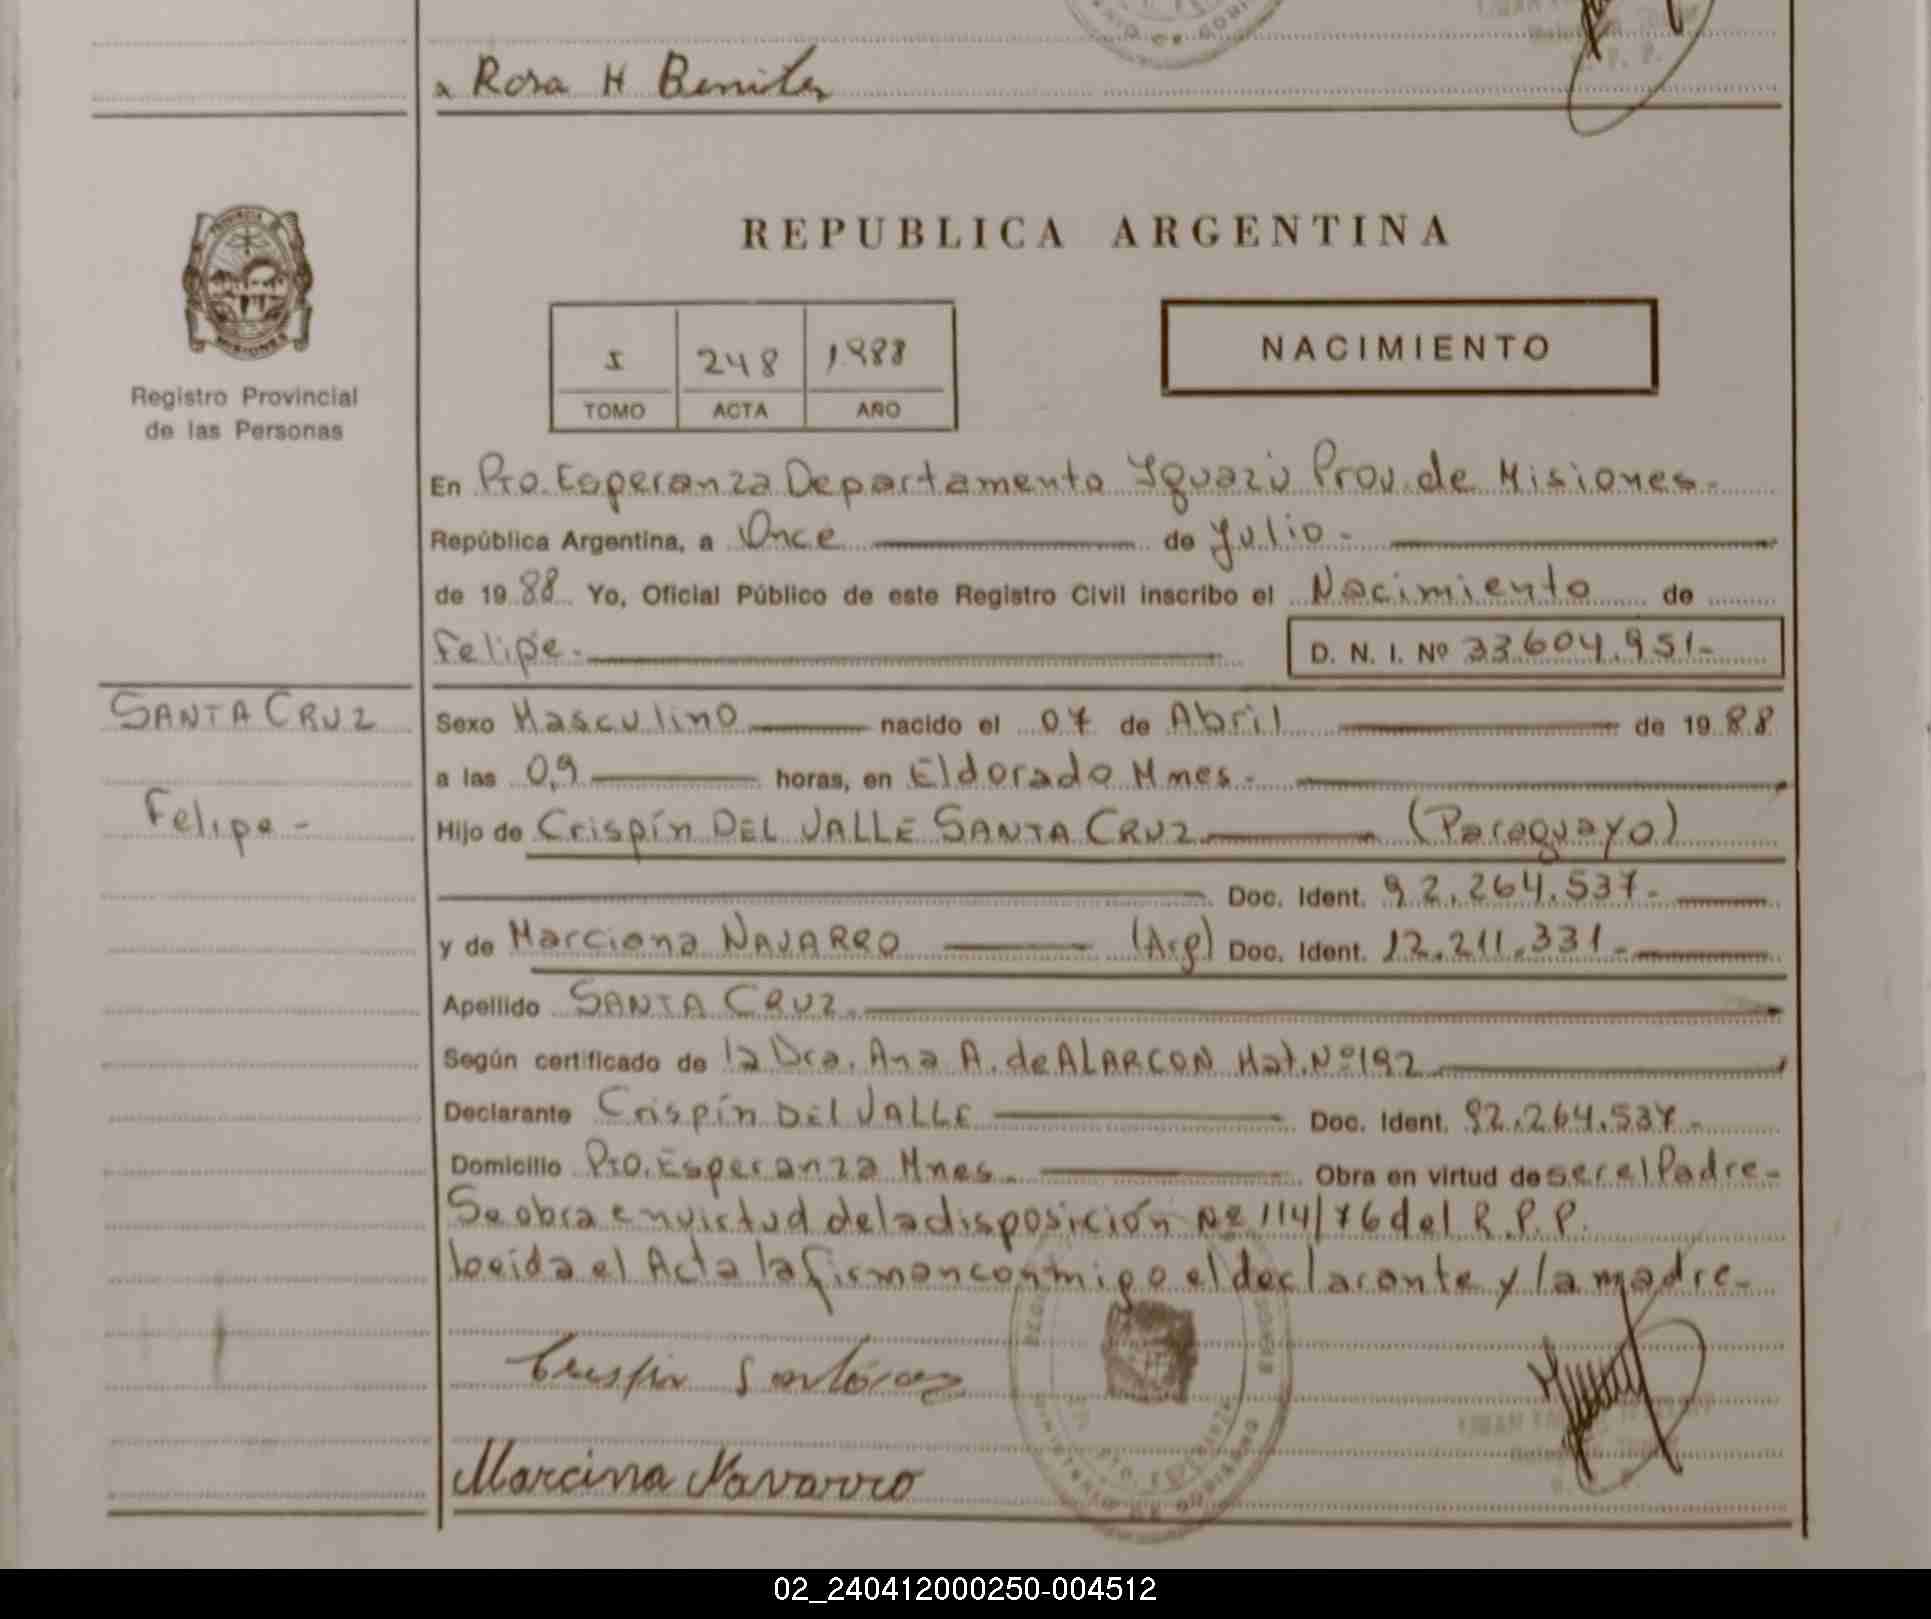 a Rosa H Benitez
REPUBLICA ARGENTINA
PROVINCIA
MISIONES
Registro Provincial
de las Personas
I 248 1988
TOMO ACTA AÑO
NACIMIENTO
En Pto. Esperanza Departamento Iguazú Prov. de Misiones.-
República Argentina, a Once de Julio.-
de 1988 Yo, Oficial Público de este Registro Civil inscribo el Nacimiento de
Felipe.- D. N. I. Nº 33.604.951.-
SANTA CRUZ
Felipe -
Sexo Masculino nacido el 07 de Abril de 1988
a las 0,9 horas, en Eldorado Mnes.-
Hijo de Crispín DEL VALLE SANTA CRUZ (Paraguayo)
Doc. Ident. 92.264.537.-
y de Marciana NAVARRO (Arg) Doc. Ident. 12.211.331.-
Apellido SANTA CRUZ.
Según certificado de la Dra. Ana A. de ALARCON Mat. Nº 192
Declarante Crispín DEL VALLE Doc. Ident. 92.264.537.-
Domicilio Pto. Esperanza Mnes. Obra en virtud de ser el Padre.-
Se obra en virtud de la disposición Nº 114/76 del R.P.P.
Leida el Acta la firman conmigo el declarante y la madre.-
Crispin
Marcina Navarro
MINISTERIO DE GOBIERNO
02_240412000250-004512